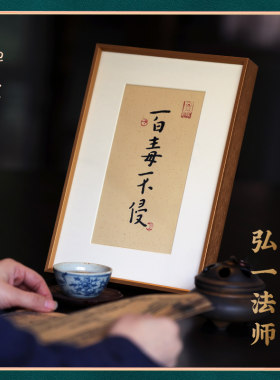 百毒不侵
弘一法师